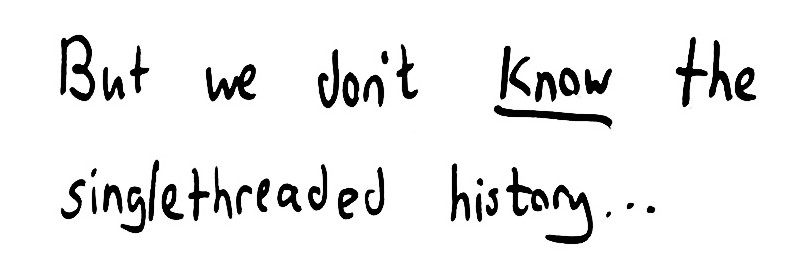 But we don't know the
singlethreaded history...